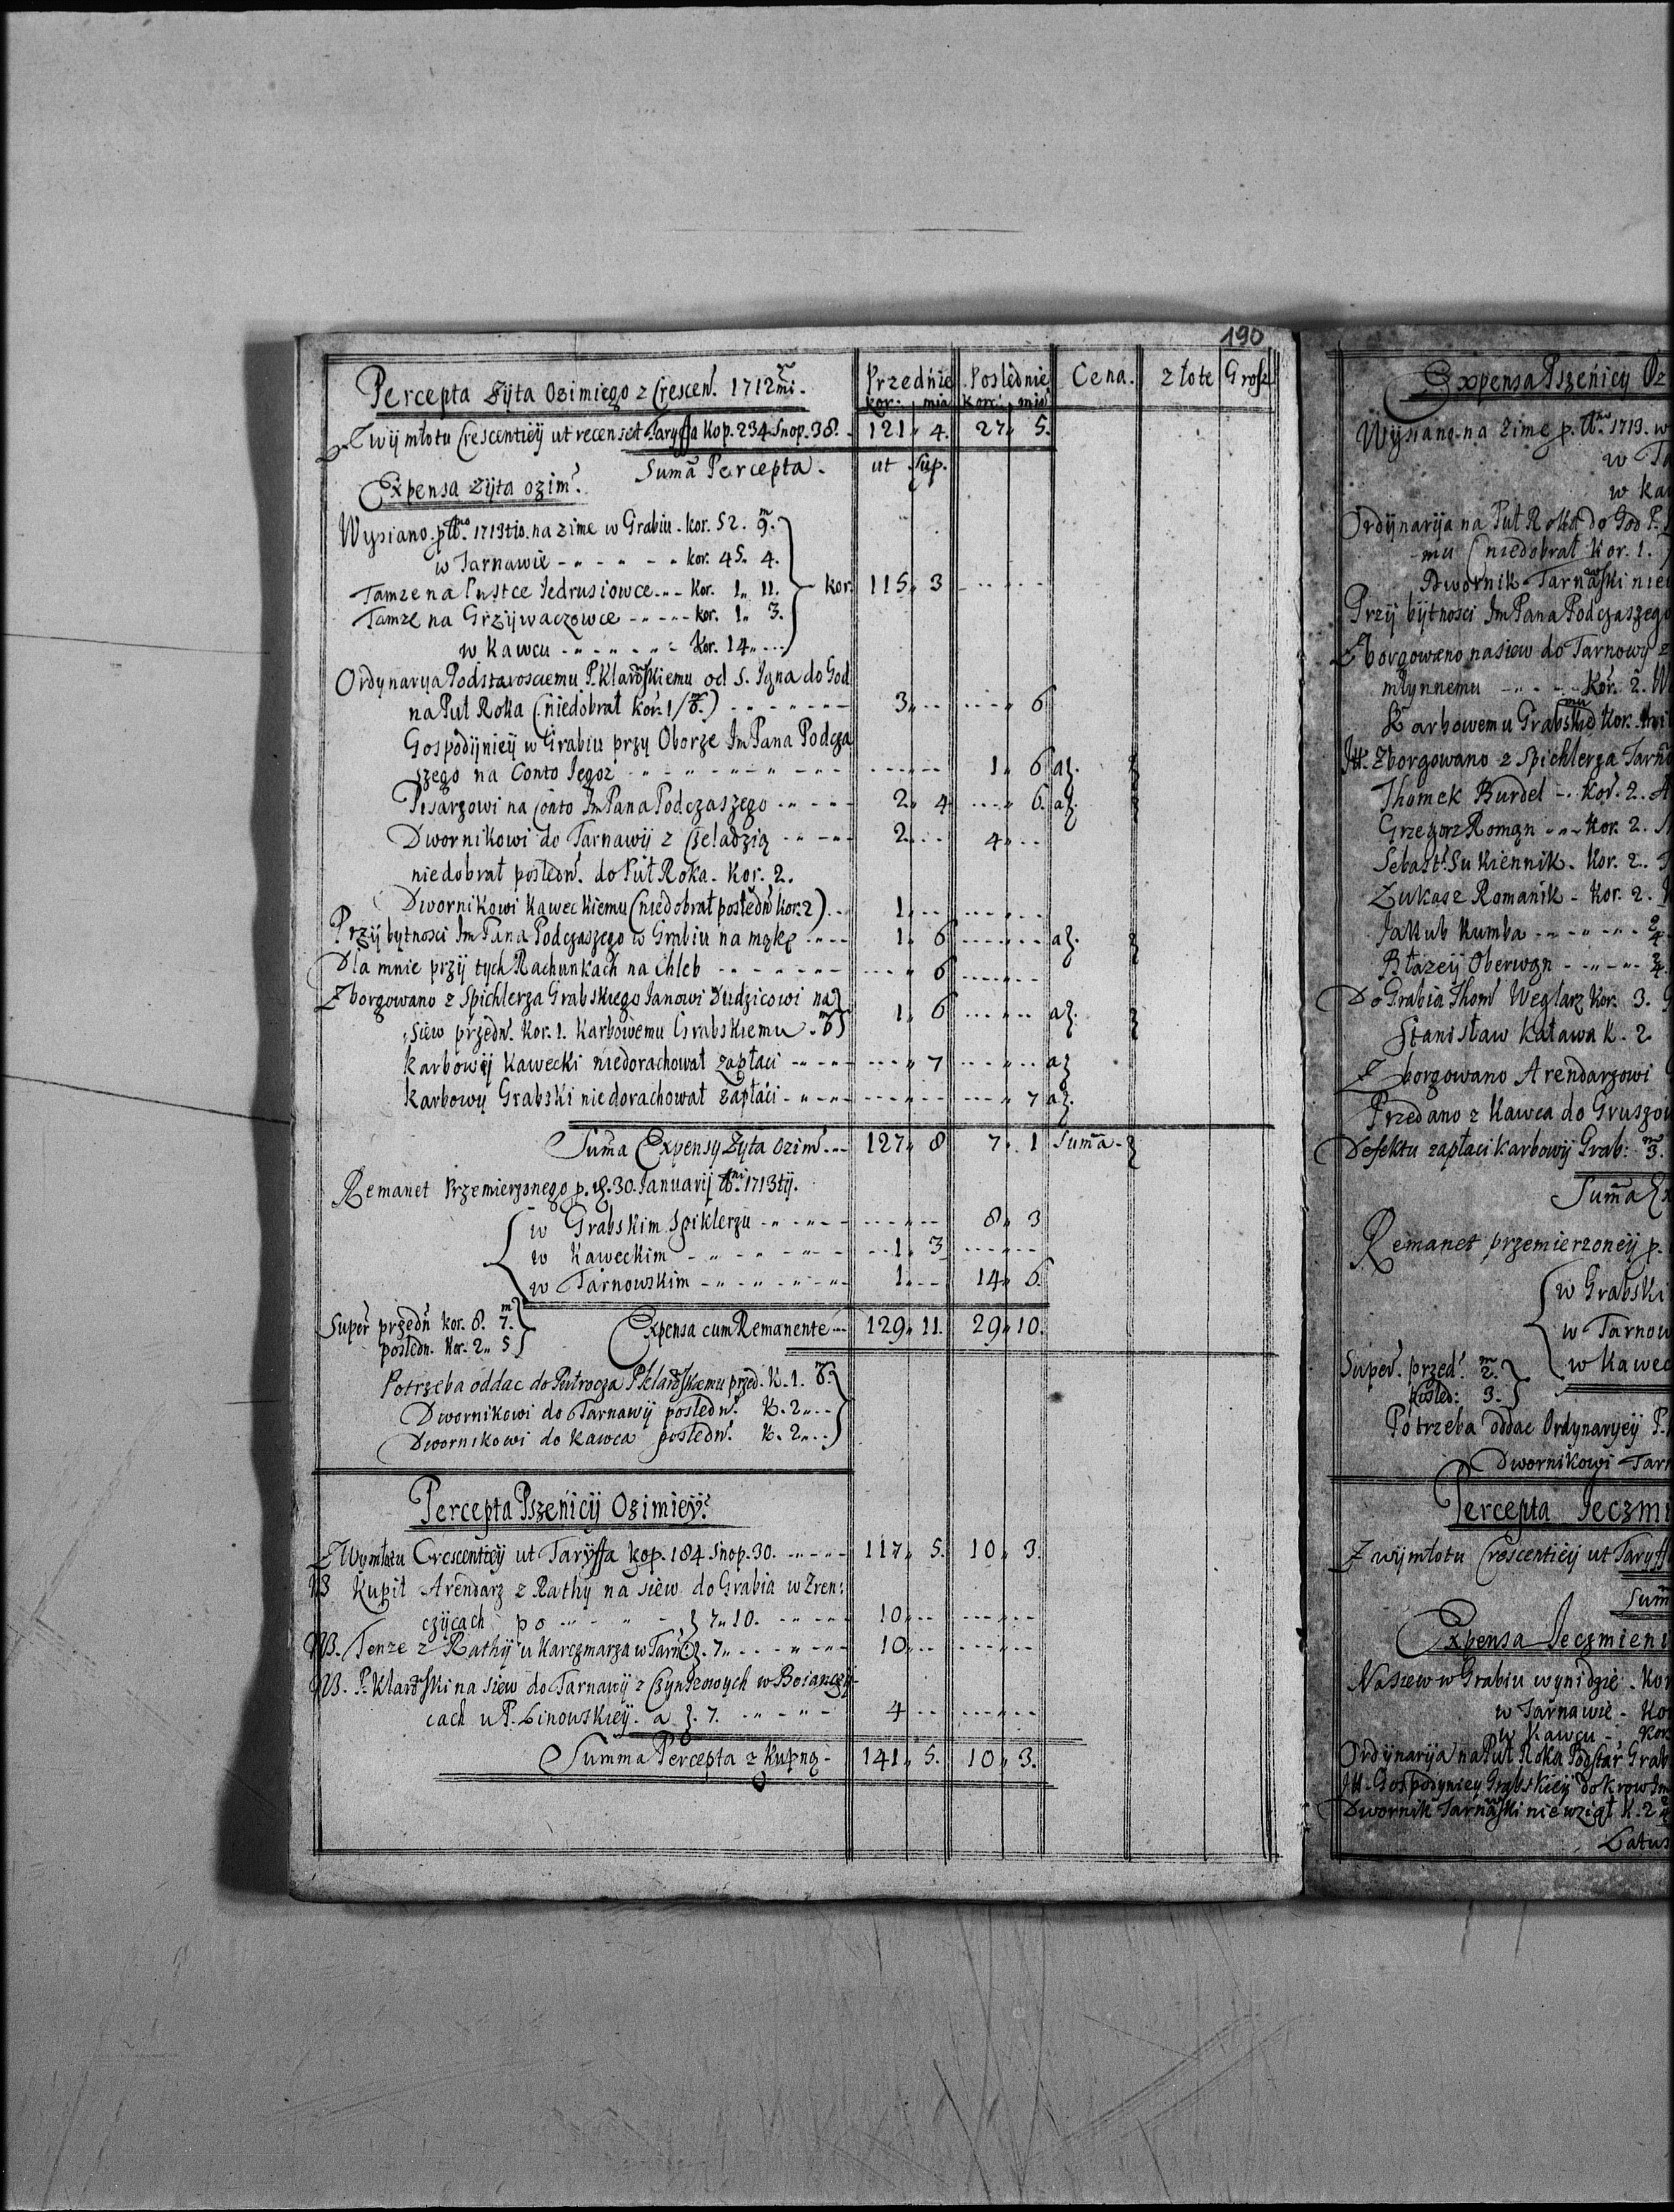 190
Percepta Zyta Ozimiego z Crescen. 1712mi. Przednie Poslednie Cena. złote Grosz
kor: mia korc: mia
Z wymłotu Crescentiey ut recenset Taryffa Kop. 234 Snop. 38. 121 „ 4. 27 „ 5.
Suma Percepta. ut Sup.
Expensa Zyta ozim.
Wysiano p. Ao. 1713tio. na zime w Grabiu. kor. 52. m 9.
w Tarnawie - „ - „ - „ kor. 45. 4.
Tamze na Pustce Jedrusiowce - „ - kor. 1 „ 11. kor. 115 „ 3
Tamze na Grzywaczowce - „ - „ - kor. 1 „ 3.
w Kawcu - „ - „ - „ - kor. 14 „ ...
Ordynarya Podstarosciemu P. Klarowskiemu od S. Jgna do God
na Puł Roka (niedobrał kor. 1/6.) 3 „ -- -- „ 6
Gospodyniey w Grabiu przy Oborze Jm Pana Podcza
szego na Conto Jegoz 1 „ 6 a z.
Pisarzowi na Conto Jm Pana Podczaszego 2 „ 4 -- „ 6. a z.
Dwornikowi do Tarnawy z Czeladzią 2 „ -- 4 „ --
niedobrał posledn. do Puł Roka. Kor. 2.
Dwornikowi Kaweckiemu (niedobrał posledn kor. 2) 1 „ --
Przy bytnosci Jm Pana Podczaszego w Grabiu na mąkę 1 „ 6 -- „ -- a z.
Dla mnie przy tych Rachunkach na Chleb -- „ 6
Zborgowano z Spichlerza Grabskiego Janowi Dudzicowi na
siew przedn. kor. 1. Karbowemu Grabskiemu m 6 1 „ 6 -- „ -- a z.
Karbowy Kawecki niedorachował zapłaci -- „ 7 -- „ -- a z
Karbowy Grabski niedorachował zapłaci -- „ -- -- „ 7 a z.
Suma Expensy Zyta ozim. 127 „ 8 7 „ 1 Suma
Remanet Przemierzonego p. d. 30. Januarij Ai. 1713tij.
w Grabskim Spiklerzu 8 „ 3
w Kaweckim 1 „ 3
w Tarnowskim 1 „ -- 14 „ 6.
Super przedn kor. 8. m 7. Expensa cum Remanente 129 „ 11. 29 „ 10.
posledn. kor. 2 „ 5
Potrzeba oddac do Pułrocza P. Klarowskiemu przed. K. 1. 6.
Dwornikowi do Tarnawy posledn. K. 2 „ ..
Dwornikowi do Kawca posledn. K. 2 „ ..
Percepta Pszenicy Ozimiey.
Z Wymłotu Crescentiey ut Taryffa kop. 184 Snop. 30. 117 „ 5. 10 „ 3.
NB Kupił Arendarz z Rathy na siew do Grabia w Zren:
czycach po z 7 „ 10. 10 „ --
NB. Tenze z Rathy u Karczmarza w Tarn z. 7 „ 10 „ --
NB. P. Klarowski na siew do Tarnawy z Czynszowych w Boianczy
cach u P. Linowskiey. a z. 7. 4 -- -- „ --
Summa Percepta z Kupną 141 „ 5. 10 „ 3.
Expensa Pszenicy Oz
Wysiano na Zime p. Ao. 1713. w
w Ta
w Kaw
Ordynarya na Puł Roka do God P.
mu (niedobrał Kor. 1.
Dwornik Tarnawski nie
Przy bytnosci Jm Pana Podczaszego
Zborgowano na siew do Tarnowy z
młynnemu - „ - - Kor. 2. W
Karbowemu Grabskie Kor.
It. Zborgowano z Spichlerza Tarno
Thomek Burdel - Kor. 2. A
Grzegorz Roman - „ - Kor. 2.
Sebast. Sukiennik. Kor. 2.
Łukasz Romanik - Kor. 2.
Jakub Kumba
Błazey Oberwan
Do Grabia Thom Weglarz Kor. 3.
Stanisław Kaława K. 2.
Zborgowano Arendarzowi
Przedano z Kawca do Gruszow
Defektu zapłaci Karbowy Grab: m 3.
Suma Ex
Remanet przemierzoney p.
w Grabski
w Tarnow
w Kawec
Super. przed. m 2.
posled: 3.
Potrzeba oddac Ordynaryey P.
Dwornikowi Tarn
Percepta Jeczmi
Z wymłotu Crescentiey ut Taryff
Sum
Expensa Jeczmieni
Na siew w Grabiu wynidzie. Kor
w Tarnawie - Kor
w Kawcu - Kor
Ordynarya na Puł Roka Podstar Grab
It. Gospodyniey Grabskiey do krow Jm
Dwornik Tarnawski nie wział K. 2
Latus